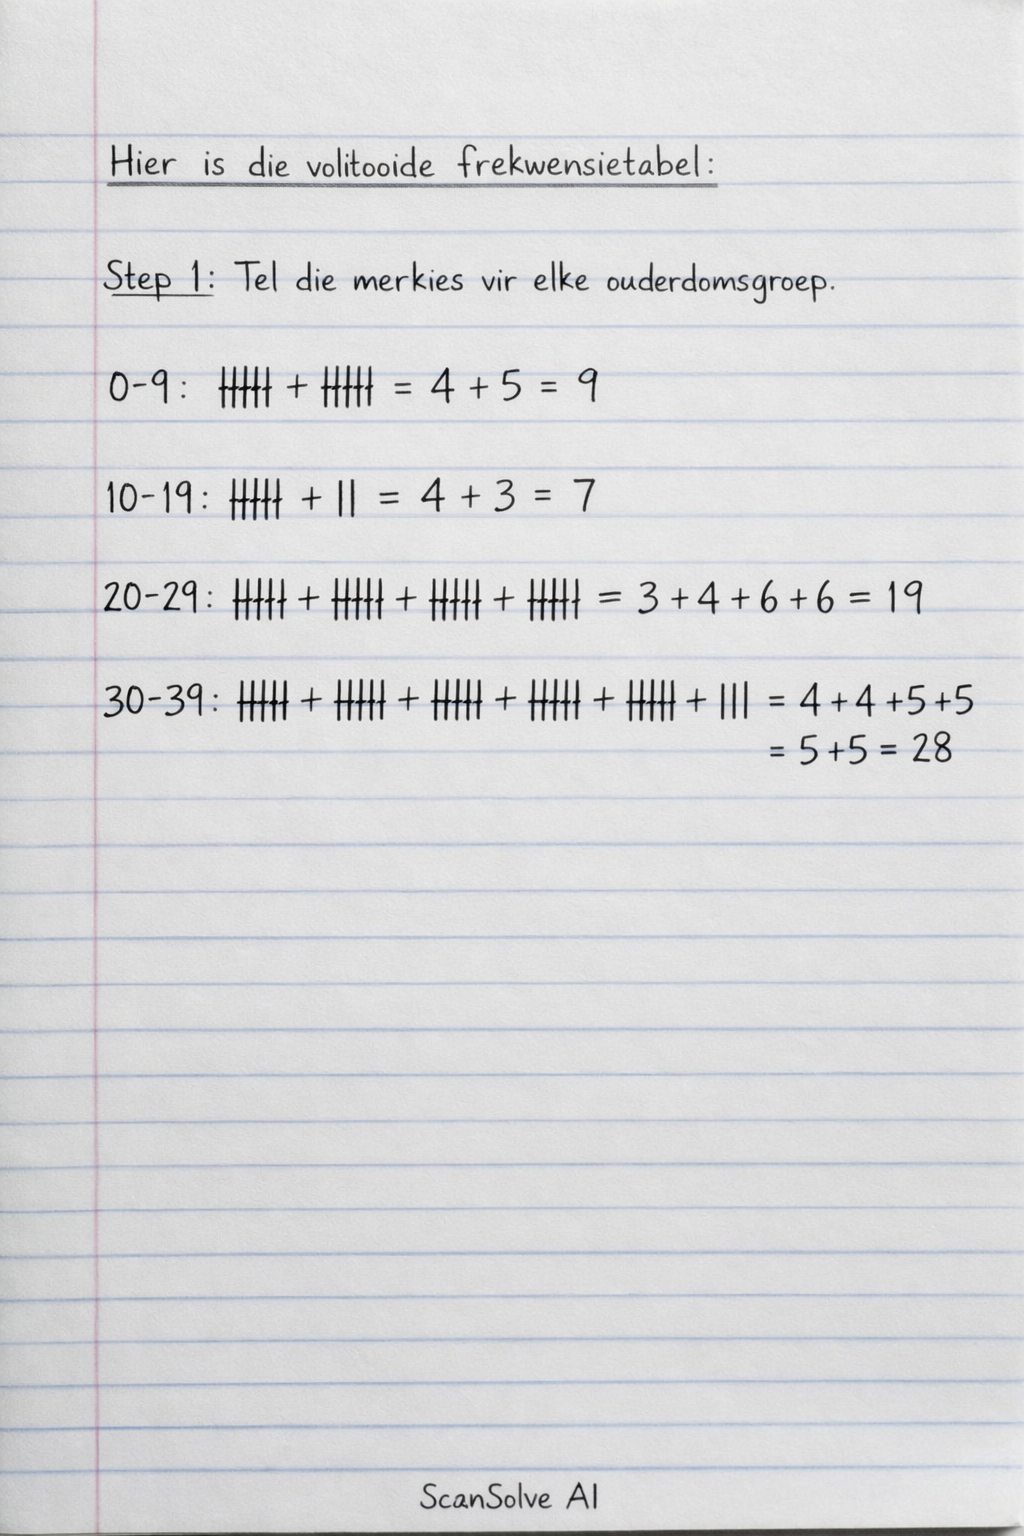 Hier is die volitooide frekwensietabel:
Step 1: Tel die merkies vir elke ouderdomsgroep.
0-9: 卌 + 卌 = 4 + 5 = 9
10-19: 卌 + || = 4 + 3 = 7
20-29: 卌 + 卌 + 卌 + 卌 = 3 + 4 + 6 + 6 = 19
30-39: 卌 + 卌 + 卌 + 卌 + 卌 + ||| = 4 + 4 + 5 + 5
= 5 + 5 = 28
ScanSolve AI